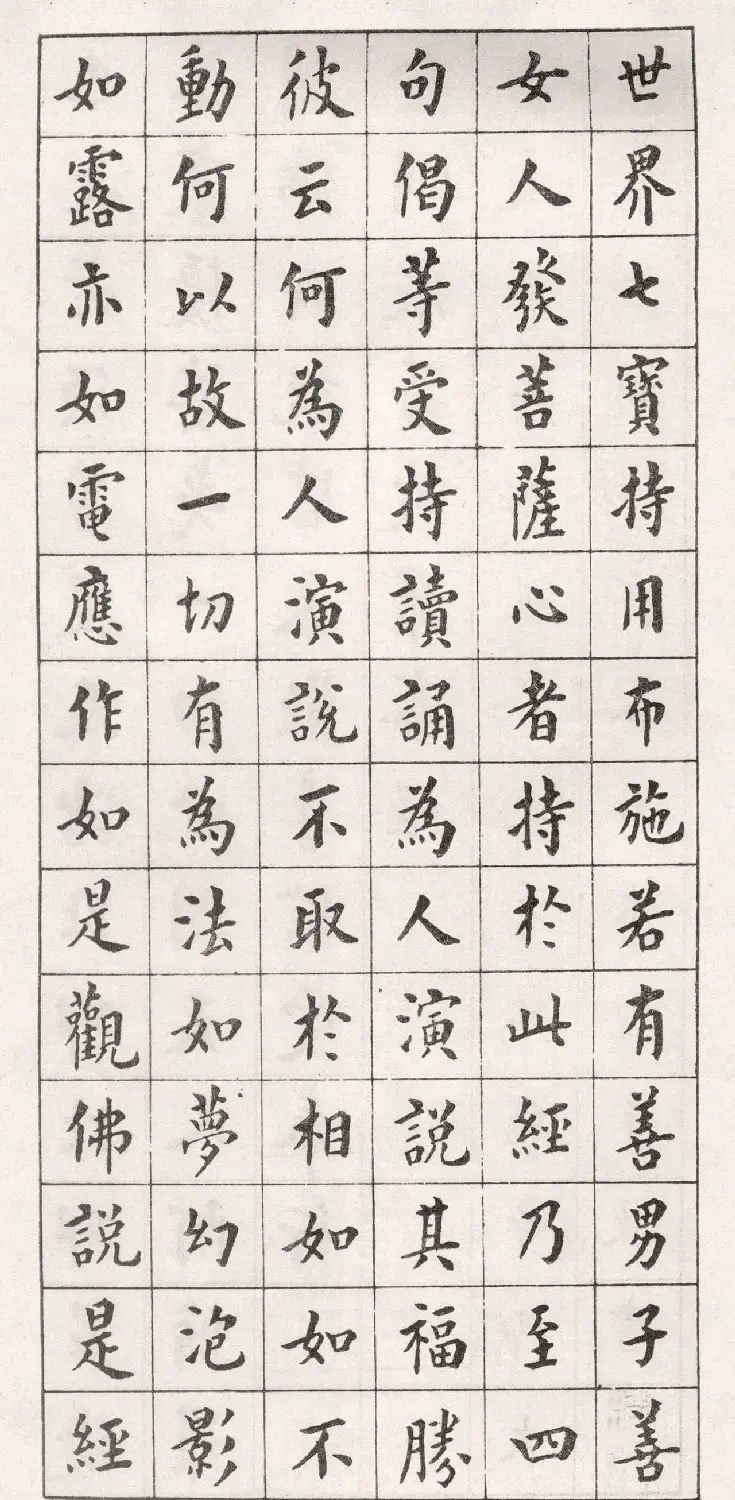 世界七寶持用布施若有善男子善
女人發菩薩心者持於此經乃至四
句偈等受持讀誦為人演説其福勝
彼云何為人演説不取於相如如不
動何以故一切有為法如夢幻泡影
如露亦如電應作如是觀佛説是經